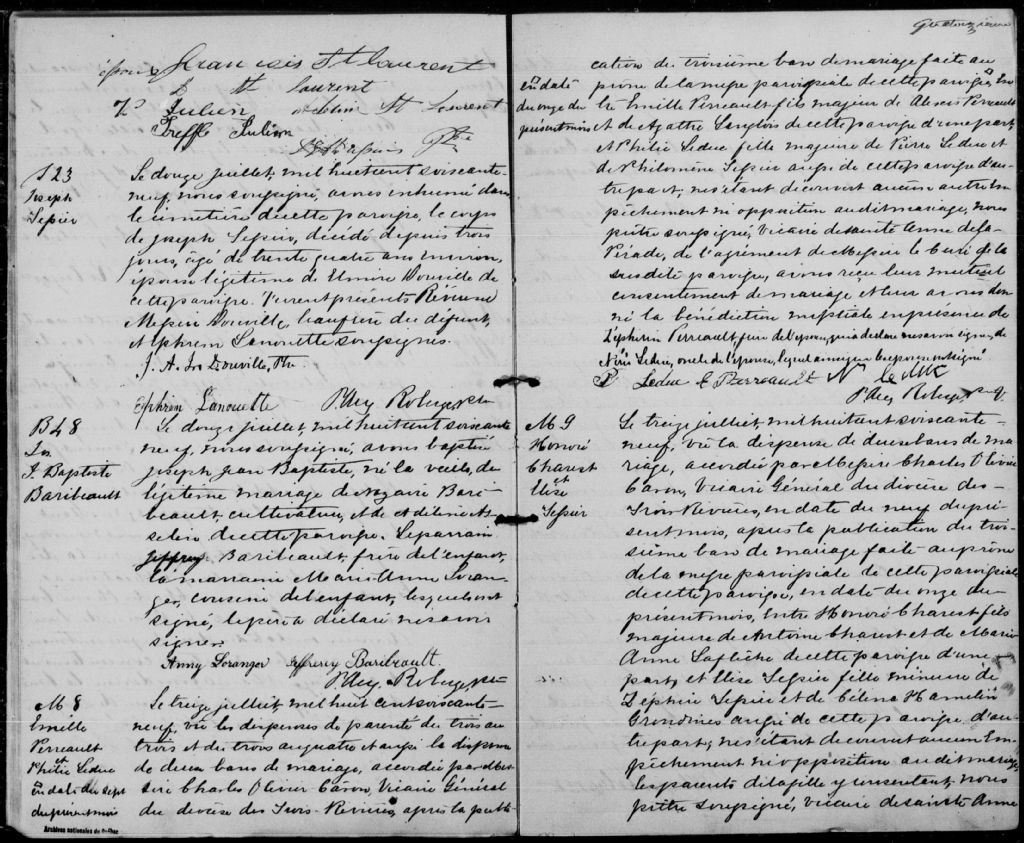 époux Francis St Laurent
St Laurent
Julien Adeline St Laurent
Treffle Julien
Ptre
S23
Joseph
Tessier
Le douze juillet, mil huit cent soixante-
neuf, nous soussigné, avons inhumé dans
le cimetière de cette paroisse, le corps
de Joseph Tessier, décédé depuis trois
jours, agé de trente quatre ans environ,
époux légitime de Elmire Douville de
cette paroisse. Furent présents Révérend
Messire Douville, beaufrère du défunt,
et Ephrem Lanouette soussignés.
J. A. Ir. Douville, Ptre
Ephrem Lanouette P. Uly Roberge ptre
B48
Jos.
J. Baptiste
Baribeault
Le douze juillet, mil huit cent soixante
neuf, nous soussigné, avons baptisé
Joseph Jean Baptiste, né la veille, du
légitime mariage de Nazaire Bari-
beault, cultivateur, et de Adeline As-
selin de cette paroisse. Le parrain
Jeffrey Baribeault, frère de l'enfant,
la marraine Marie Anne Loran-
ger, cousine de l'enfant, lesquels ont
signé, le père a déclaré ne savoir
signer.
Anny Loranger Jeffrey Baribeault.
P. Uly. Roberge, ptre
M8
Emille
Perreault
et
Philie Leduc
En date du sept
du présent mois
Le treize juillet, mil huit cent soixante-
neuf, vu les dispenses de parenté du trois au
trois et du trois au quatre et aussi la dispense
de deux bans de mariage, accordée par Mes-
sire Charles Olivier Caron, Vicaire Général
du diocèse des Trois-Rivières, après la publi-
Archives nationales du Québec
Quatorzième
cation du troisième ban de mariage faite au
prône de la messe paroissiale de cette paroisse, En-
En date
du onze du
présent mois
tre Emille Perreault fils majeur de Alexis Perreault
et de Agathe Langlois de cette paroisse d'une part,
et Philie Leduc fille majeure de Pierre Leduc et
de Philomène Tessier aussi de cette paroisse d'au-
tre part, ne s'étant découvert aucun autre em-
pêchement ni opposition au dit mariage, nous
prêtre soussigné, vicaire de Sainte Anne de la
Pérade, de l'agrément de Messire le Curé de la
susdite paroisse, avons reçu leur mutuel
consentement de mariage et leur avons don-
né la bénédiction nuptiale en présence de
Zéphirin Perreault, frère de l'époux, qui a déclaré ne savoir signer, de
Néré Leduc, oncle de l'épouse, lequel a avec les époux signé
P. Leduc E Perreault N Leduc
P. Uly Roberge ptre V.
M9
Honoré
Charest
et
Elise
Tessier
Le treize juillet, mil huit cent soixante-
neuf, vu la dispense de deux bans de ma-
riage, accordée par Messire Charles Olivier
Caron, Vicaire Général du diocèse des
Trois-Rivières, en date du neuf du pré-
sent mois, après la publication du troi-
sième ban de mariage faite au prône
de la messe paroissiale de cette paroissiale
de cette paroisse, en date du onze du
présent mois, Entre Honoré Charest fils
majeur de Antoine Charest et de Marie
Anne Laflèche de cette paroisse d'une
part, et Elise Tessier fille mineure de
Zéphir Tessier et de Célina Hamelin
Grondines aussi de cette paroisse d'au-
tre part; ne s'étant découvert aucun Em-
pêchement ni opposition au dit mariage,
les parents de la fille y consentent, nous
prêtre soussigné, vicaire de Sainte Anne